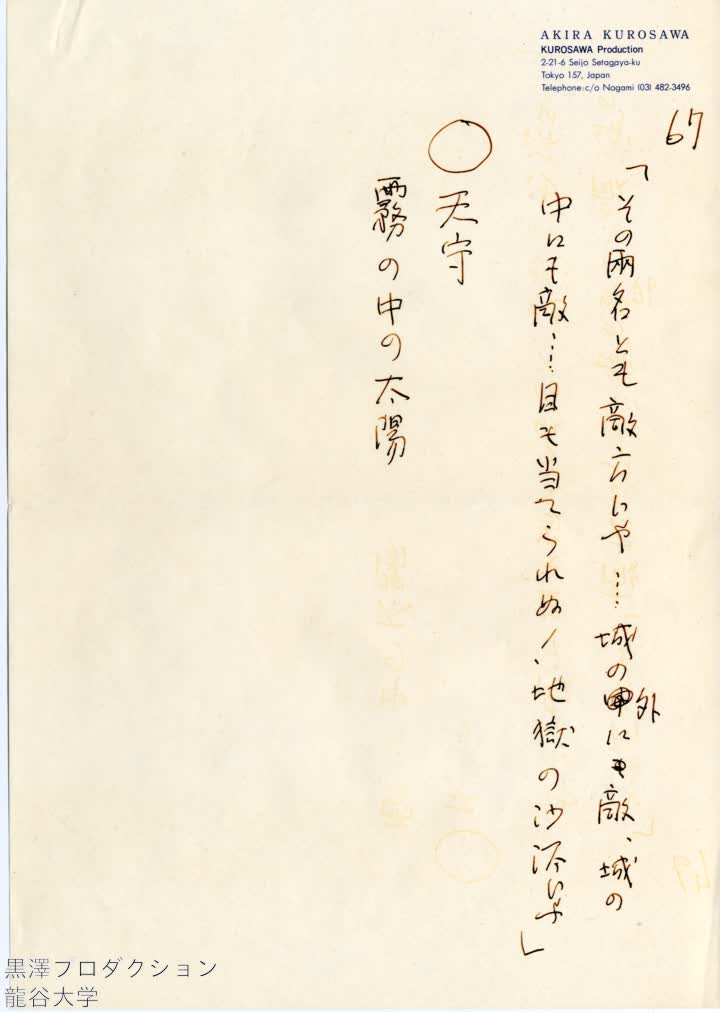 AKIRA KUROSAWA
KUROSAWA Production
2-21-6 Seijo Setagaya-ku
Tokyo 157, Japan
Telephone: c/o Nogami (03) 482-3496
67
「その兩名とも敵方じゃ……城の外にも敵、城の
中にも敵……目も当てられぬ！地獄の沙汰じゃ」
○天守
霧の中の太陽
黒澤プロダクション
龍谷大学